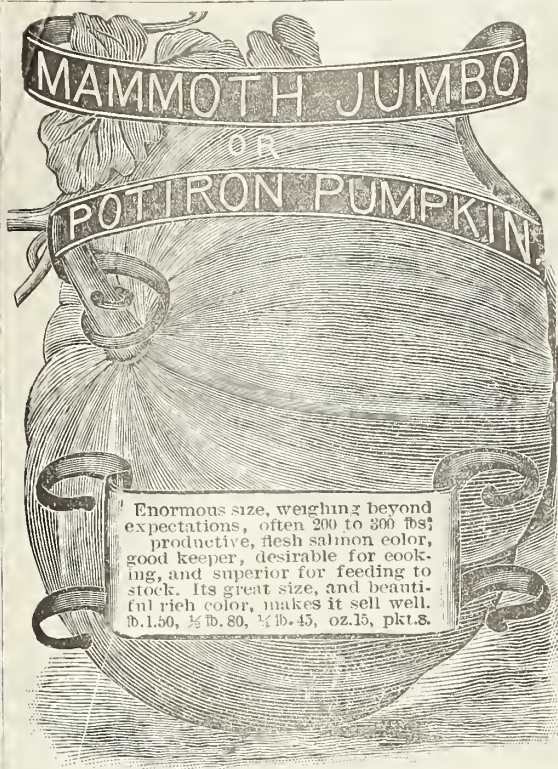 MAMMOTH JUMBO
OR
POTIRON PUMPKIN
Enormous size, weighing beyond
expectations, often 200 to 300 lbs;
productive, flesh salmon color,
good keeper, desirable for cook-
ing, and superior for feeding to
stock. Its great size, and beauti-
ful rich color, makes it sell well.
lb. 1.50, ½ lb. 80, ¼ lb. 45, oz. 15, pkt. 8.